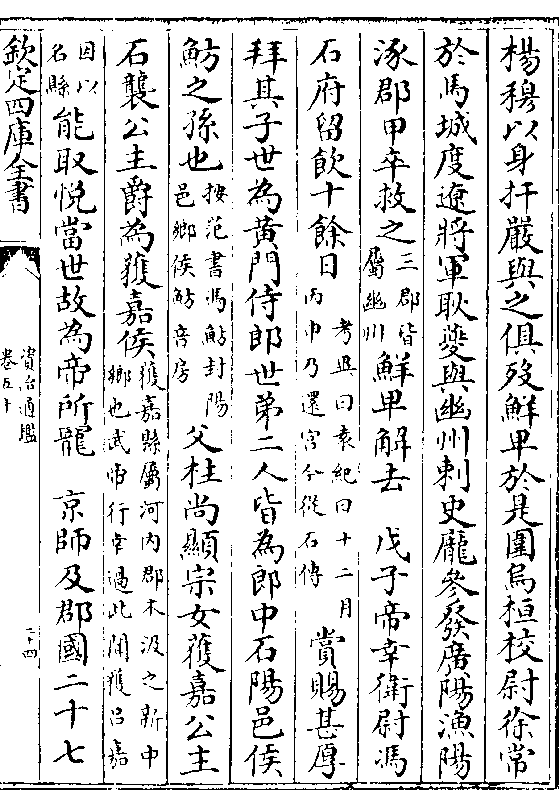 楊穆以身扞嚴與之俱歿鮮卑於是圍烏桓校尉徐常
於馬城度遼將軍耿夔與幽州刺史龐參發廣陽漁陽
涿郡甲卒救之三郡皆屬幽州鮮卑解去 戊子帝幸衛尉馮
石府留飲十餘日考異曰袁紀曰十二月丙申乃還宮今從石傳賞賜甚厚
拜其子世為黃門侍郎世弟二人皆為郎中石陽邑侯
魴之孫也按范書馮魴封陽邑鄉侯魴音房父柱尚顯宗女獲嘉公主
石襲公主爵為獲嘉侯獲嘉縣屬河内郡本汲之新中鄉也武帝行幸過此聞獲吕嘉
因以名縣能取悦當世故為帝所寵 京師及郡國二十七
欽定四庫全書
資治通鑑
卷五十
二十四